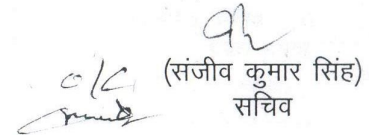 o/c (संजीव कुमार सिंह)
सचिव